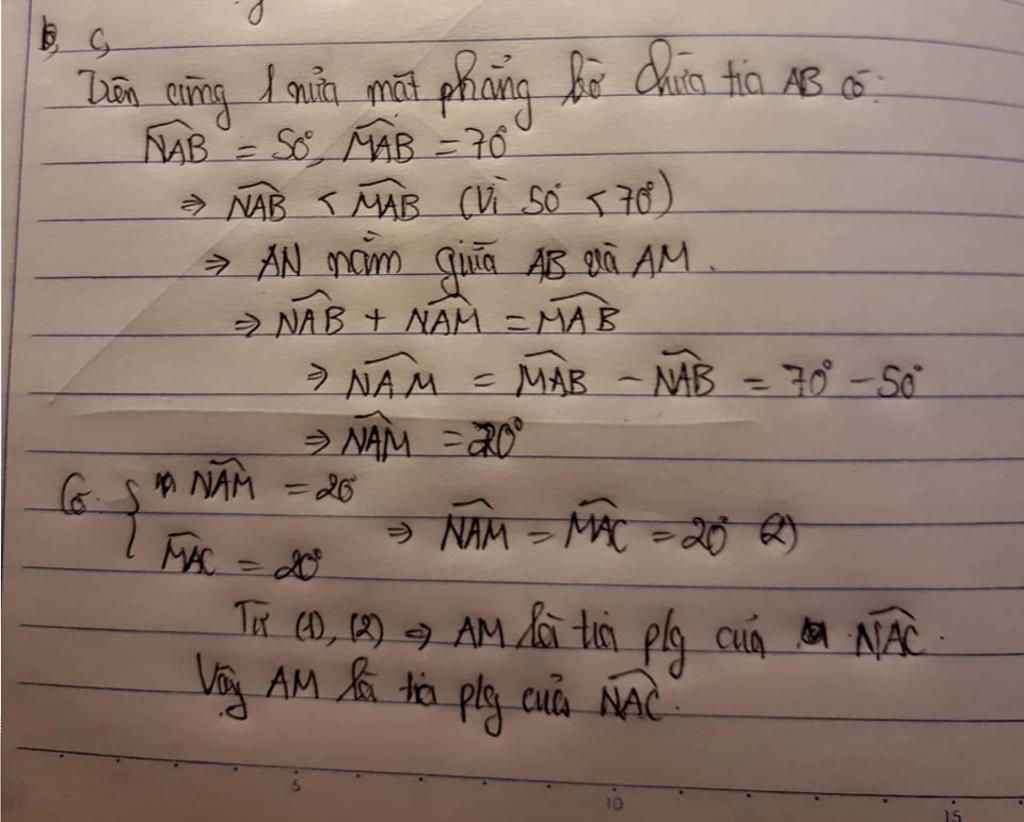 c,
Trên cùng 1 nửa mặt phẳng bờ chứa tia AB có:
$\widehat{NAB}$ = 50°, $\widehat{MAB}$ = 70°
⇒ $\widehat{NAB}$ < $\widehat{MAB}$ (Vì 50° < 70°)
⇒ AN nằm giữa AB và AM.
⇒ $\widehat{NAB}$ + $\widehat{NAM}$ = $\widehat{MAB}$
⇒ $\widehat{NAM}$ = $\widehat{MAB}$ - $\widehat{NAB}$ = 70° - 50°
⇒ $\widehat{NAM}$ = 20°
Có: { $\widehat{NAM}$ = 20°
$\widehat{MAC}$ = 20°
⇒ $\widehat{NAM}$ = $\widehat{MAC}$ = 20° (2)
Từ (1), (2) ⇒ AM là tia plg của $\widehat{NAC}$.
Vậy AM là tia plg của $\widehat{NAC}$.
5 10 15